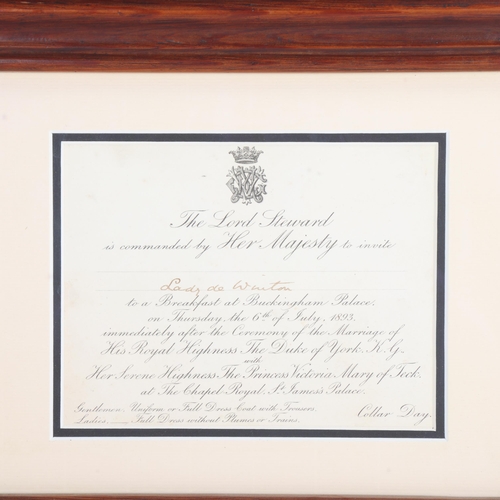 The Lord Steward
is commanded by Her Majesty to invite
Lady de Winton
to a Breakfast at Buckingham Palace,
on Thursday, the 6th of July, 1893,
immediately after the Ceremony of the Marriage of
His Royal Highness The Duke of York, K.G.
with
Her Serene Highness The Princess Victoria Mary of Teck,
at The Chapel Royal, St. James's Palace.
Gentlemen, Uniform or Full Dress Coat with Trousers.
Ladies, Full Dress without Plumes or Trains.
Collar Day.